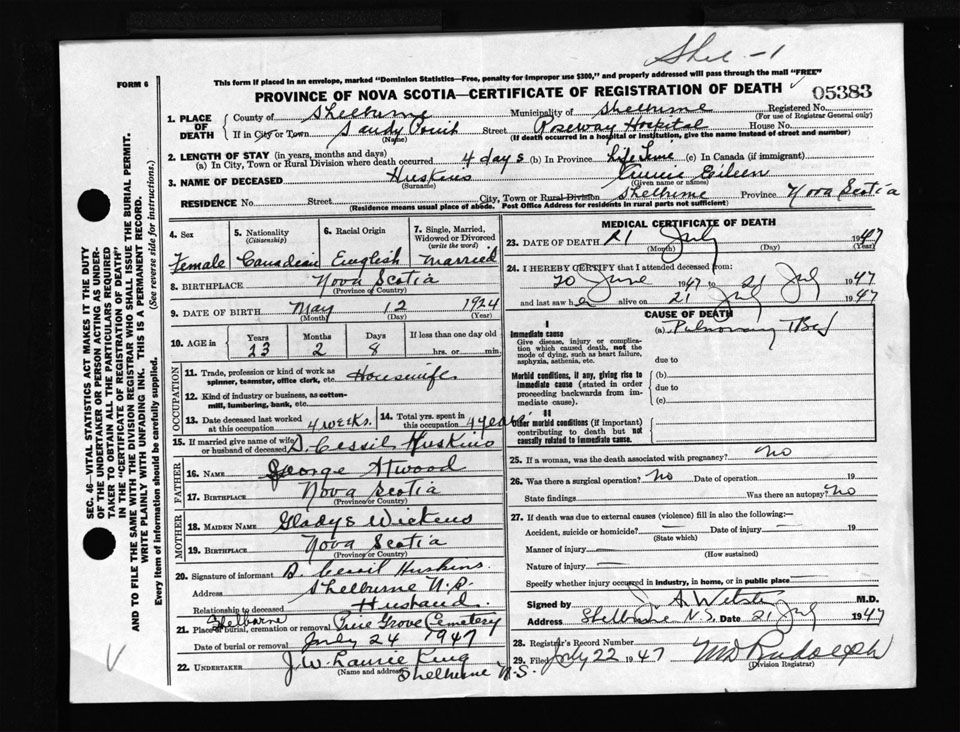 Shel-1
FORM 6
This form if placed in an envelope, marked "Dominion Statistics—Free, penalty for improper use $300," and properly addressed will pass through the mail "FREE"
PROVINCE OF NOVA SCOTIA—CERTIFICATE OF REGISTRATION OF DEATH
05383
1. PLACE OF DEATH
County of Shelburne Municipality of Shelburne Registered No.
(For use of Registrar General only)
If in City or Town Sandy Point Street Roseway Hospital House No.
(Name) (If death occurred in a hospital or institution, give the name instead of street and number)
2. LENGTH OF STAY (in years, months and days)
(a) In City, Town or Rural Division where death occurred 4 days (b) In Province Life Time (c) In Canada (if immigrant)
3. NAME OF DECEASED Huskins Annie Eileen
(Surname) (Given name or names)
RESIDENCE No. Street City, Town or Rural Division Shelburne Province Nova Scotia
(Residence means usual place of abode. Post Office Address for residents in rural parts not sufficient)
4. Sex
Female
5. Nationality
(Citizenship)
Canadian
6. Racial Origin
English
7. Single, Married, Widowed or Divorced
(write the word)
Married
8. BIRTHPLACE Nova Scotia
(Province or Country)
9. DATE OF BIRTH May 12 1924
(Month) (Day) (Year)
10. AGE in
Years Months Days If less than one day old
23 2 8 hrs. or min.
OCCUPATION
11. Trade, profession or kind of work as spinner, teamster, office clerk, etc. Housewife
12. Kind of industry or business, as cotton-mill, lumbering, bank, etc.
13. Date deceased last worked at this occupation 4 weeks.
14. Total yrs. spent in this occupation 4 years
15. If married give name of wife or husband of deceased D. Cessil Huskins
FATHER
16. NAME George Atwood
17. BIRTHPLACE Nova Scotia
(Province or Country)
MOTHER
18. MAIDEN NAME Gladys Wickens
19. BIRTHPLACE Nova Scotia
(Province or Country)
20. Signature of informant D. Cessil Huskins.
Address Shelburne N.S.
Relationship to deceased Husband.
21. Place of burial, cremation or removal Shelburne Pine Grove Cemetery
Date of burial or removal July 24 1947
22. UNDERTAKER J.W. Laurie King
(Name and address) Shelburne N.S.
MEDICAL CERTIFICATE OF DEATH
23. DATE OF DEATH 21 July 1947
(Month) (Day) (Year)
24. I HEREBY CERTIFY that I attended deceased from:
20 June 1947 to 21 July 1947
and last saw her alive on 21 July 1947
CAUSE OF DEATH
I
Immediate cause
Give disease, injury or complication which caused death, not the mode of dying, such as heart failure, asphyxia, asthenia, etc.
(a) Pulmonary TBcs
due to
Morbid conditions, if any, giving rise to immediate cause (stated in order proceeding backwards from immediate cause).
(b)
due to
(c)
II
Other morbid conditions (if important) contributing to death but not causally related to immediate cause.
25. If a woman, was the death associated with pregnancy? No
26. Was there a surgical operation? No Date of operation 19
State findings Was there an autopsy? No
27. If death was due to external causes (violence) fill in also the following:—
Accident, suicide or homicide? — Date of injury — 19
(State which)
Manner of injury —
(How sustained)
Nature of injury —
Specify whether injury occurred in industry, in home, or in public place —
Signed by M.D.
Address Shelburne N.S. Date 21 July 1947
28. Registrar's Record Number
29. Filed July 22 1947 MD Rudolph
(Division Registrar)
SEC. 46—VITAL STATISTICS ACT MAKES IT THE DUTY
OF THE UNDERTAKER OR PERSON ACTING AS UNDER-
TAKER TO OBTAIN ALL THE PARTICULARS REQUIRED
IN THE "CERTIFICATE OF REGISTRATION OF DEATH"
AND TO FILE THE SAME WITH THE DIVISION REGISTRAR WHO SHALL ISSUE THE BURIAL PERMIT.
WRITE PLAINLY WITH UNFADING INK. THIS IS A PERMANENT RECORD.
Every item of information should be carefully supplied. (See reverse side for instructions.)